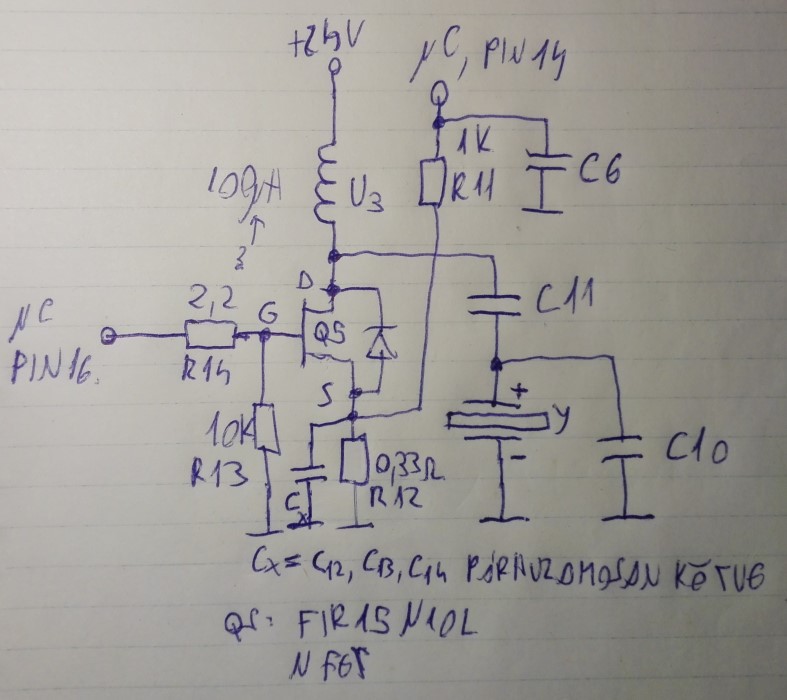 +24V
µC, PIN14
1K
R11
C6
U3
D
C11
2,2
G
Q5
µC
PIN16.
R14
S
+
Y
10K
R13
0,33Ω
R12
-
C10
Cx
Cx = C12, C13, C14 PÁRHUZAMOSAN KÖTVE
Q5: FIR15N10L
N FET